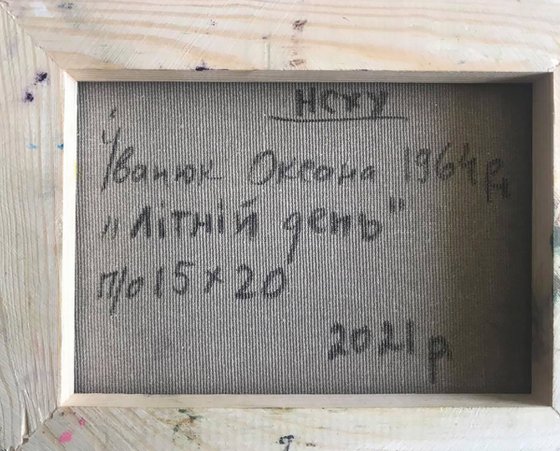 НСХУ
Іванюк Оксана 1964 р.н
"Літній день"
п/о 15 х 20
2021 р.